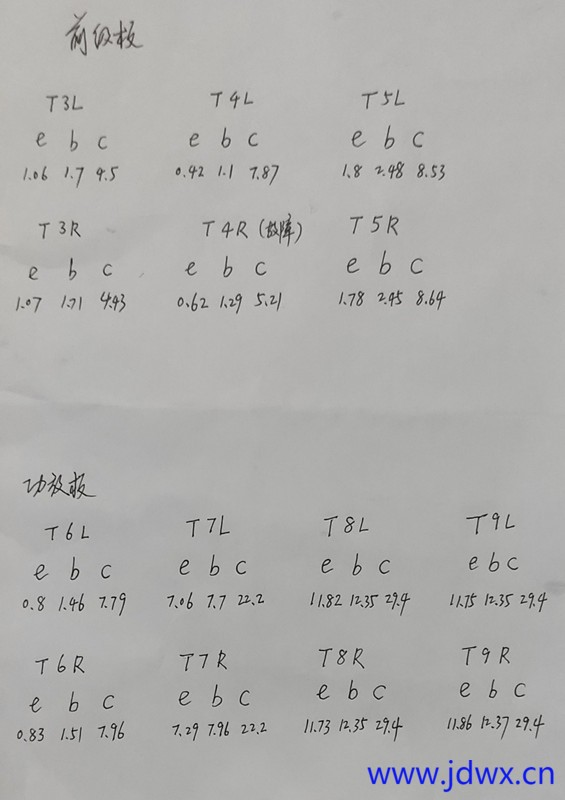 前级板
T3L T4L T5L
e b c e b c e b c
1.06 1.7 4.5 0.42 1.1 7.87 1.8 2.48 8.53
T3R T4R(故障) T5R
e b c e b c e b c
1.07 1.71 4.43 0.62 1.29 5.21 1.78 2.45 8.64
功放板
T6L T7L T8L T9L
e b c e b c e b c e b c
0.8 1.46 7.79 7.06 7.7 22.2 11.82 12.35 29.4 11.75 12.35 29.4
T6R T7R T8R T9R
e b c e b c e b c e b c
0.83 1.51 7.96 7.29 7.96 22.2 11.73 12.35 29.4 11.86 12.37 29.4
www.jdwx.cn